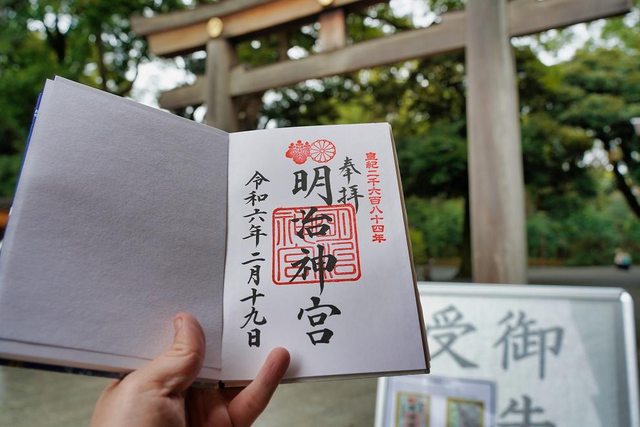 皇紀二千六百八十四年
奉拝
明治神宮
明治
神宮
令和六年二月十九日
御
受